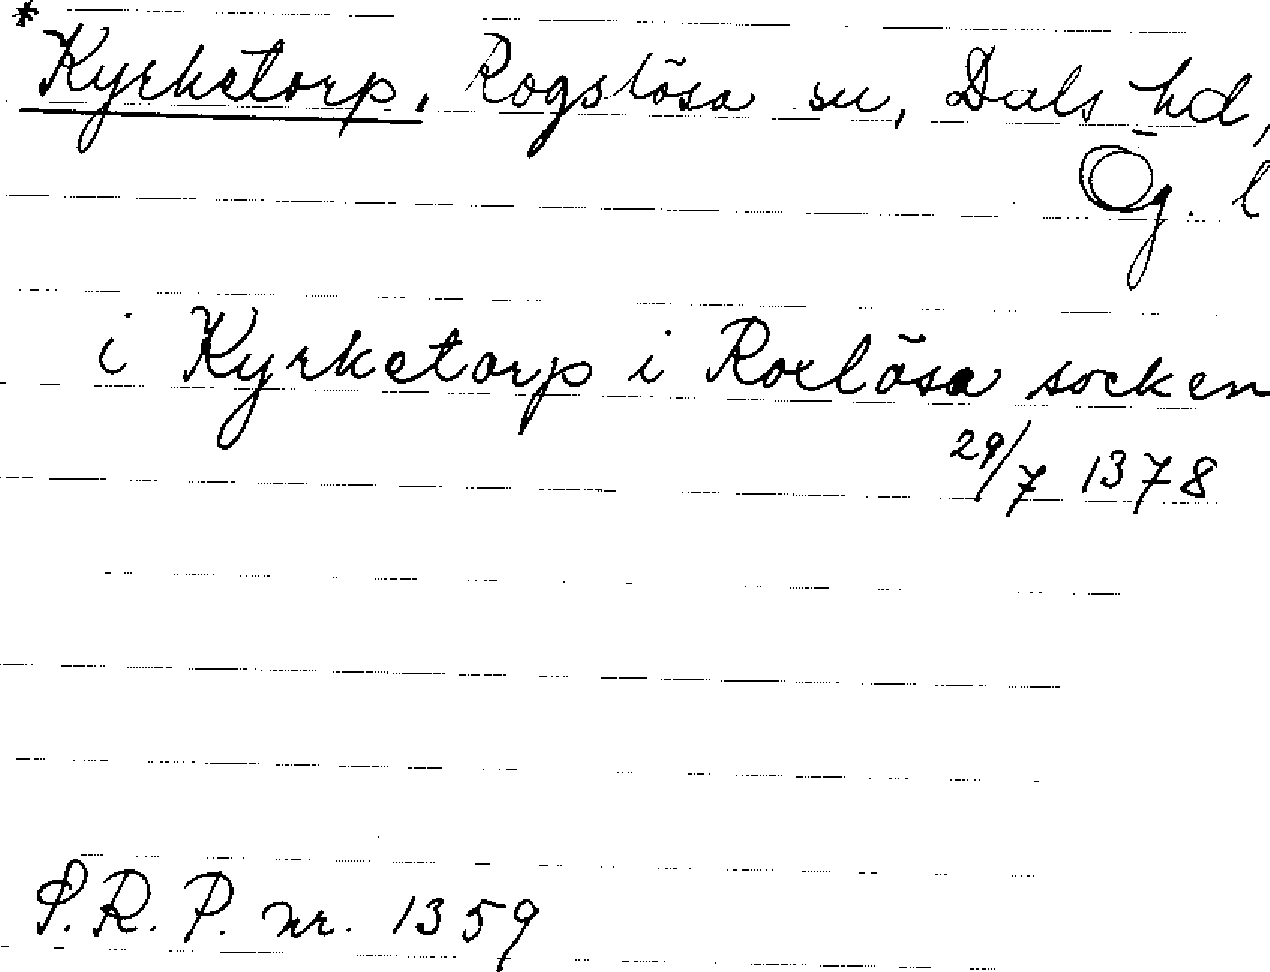 *Kyrketorp, Rogslösa sn, Dals hd,
Ög. l
i Kyrketorp i Roclösa socken
29/7 1378
S.R.P. nr. 1359